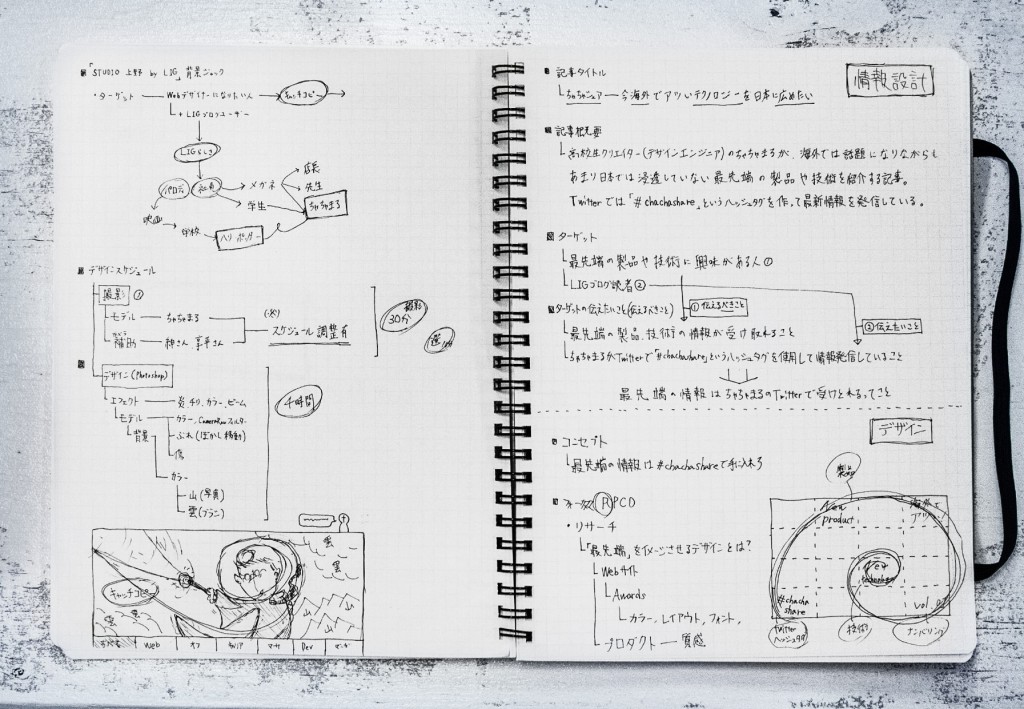 「STUDIO 上野 by LIG」背景ジャック
・ターゲット — Webデザイナーになりたい人 → キャッチコピー →
+ LIGブログユーザー
LIGらしさ
パロディ
社員
メガネ
店長
先生
学生
ちゃちゃまる
映画
学校
ハリーポッター
デザインスケジュール
撮影 ①
モデル — ちゃちゃまる
補助 — 神さん 享平さん
スケジュール調整有
撮影
30分
デザイン(Photoshop)
エフェクト — 炎チリ、カラー、ビーム
モデル — カラー、CameraRawフィルター
ぶれ(ぼかし移動)
傷
背景
カラー
山(写真)
雲(ブラシ)
4時間
雲
雲
キャッチコピー
すべて
Web
オフ
Dev
情報設計
記事タイトル
ちゃちゃシェア — 今海外でアツいテクノロジーを日本に広めたい
記事概要
高校生クリエイター(デザインエンジニア)のちゃちゃまるが、海外では話題になりながらも
あまり日本では浸透していない最先端の製品や技術を紹介する記事。
Twitterでは「#chachashare」というハッシュタグを作って最新情報を発信している。
ターゲット
最先端の製品や技術に興味がある人①
LIGブログ読者②
①伝えるべきこと
②伝えたいこと
ターゲットの伝えたいこと(伝えるべきこと)
最先端の製品、技術の情報が受け取れること
ちゃちゃまるがTwitterで「#chachashare」というハッシュタグを使用して情報発信していること
最先端の情報はちゃちゃまるのTwitterで受けとれるってこと
デザイン
コンセプト
最先端の情報は#chachashareで手に入れろ
フォーカス RPCD
・リサーチ
「最先端」をイメージさせるデザインとは?
Webサイト
Awards
カラー、レイアウト、フォント、
プロダクト — 質感
製品
New product
海外で
アツい!
#chacha
share
Twitter
ハッシュタグ
技術
ナンバリング